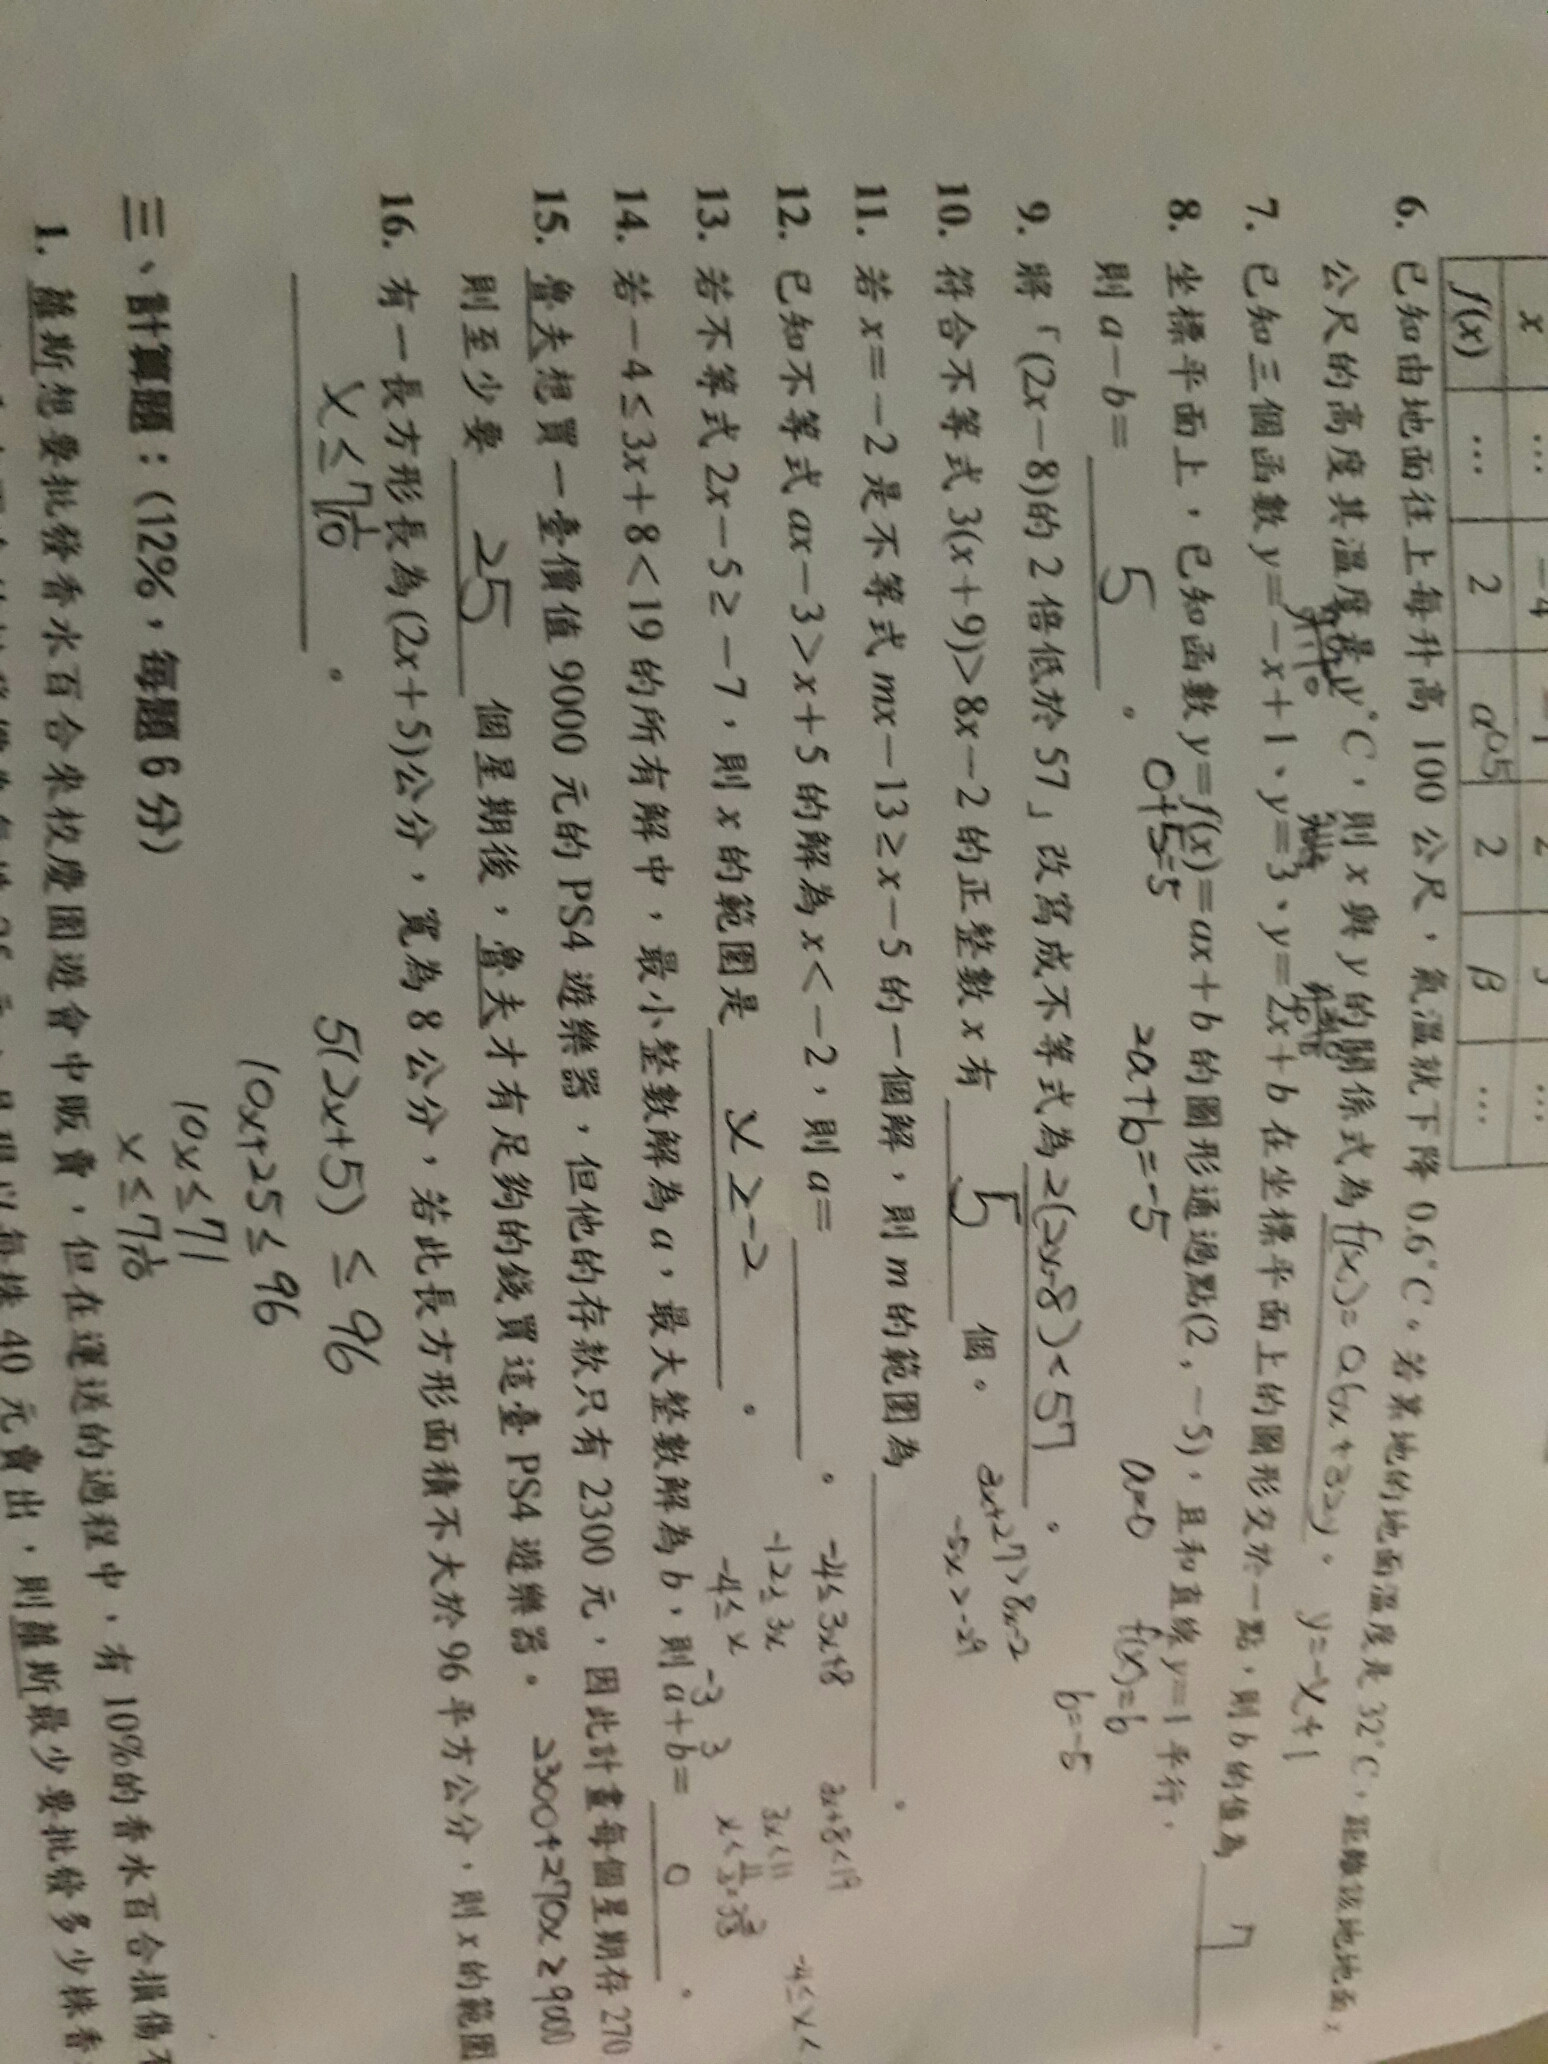 x … -4 -1 2 5 …
f(x) … 2 α 0.5 2 β …
6. 已知由地面往上每升高 100 公尺，氣溫就下降 0.6°C。若某地的地面溫度是 32°C，距離該地地面 x
公尺的高度其溫度是 y°C，則 x 與 y 的關係式為 f(x)=0.6x+32y。 y=-x+1
7. 已知三個函數 y=-x+1、y=3、y=2x+b 在坐標平面上的圖形交於一點，則 b 的值為 7 。
8. 坐標平面上，已知函數 y=f(x)=ax+b 的圖形通過點(2,-5)，且和直線 y=1 平行，
則 a-b= 5 。 0+5=5 2a+b=-5 a=0 f(x)=b b=-5
9. 將「(2x-8)的 2 倍低於 57」改寫成不等式為 2(2x-8)<57 。
10. 符合不等式 3(x+9)>8x-2 的正整數 x 有 5 個。 3x+27>8x-2
-5x>-29
11. 若 x=-2 是不等式 mx-13≥x-5 的一個解，則 m 的範圍為 。
12. 已知不等式 ax-3>x+5 的解為 x<-2，則 a= 。 -4≤3x+8 3x+8<19
-12≤3x 3x<11
13. 若不等式 2x-5≥-7，則 x 的範圍是 x≥-2 。 -4≤x
-3 3
14. 若-4≤3x+8<19 的所有解中，最小整數解為 a，最大整數解為 b，則 a+b= 0 。
15. 魯夫想買一臺價值 9000 元的 PS4 遊樂器，但他的存款只有 2300 元，因此計畫每個星期存 270
則至少要 25 個星期後，魯夫才有足夠的錢買這臺 PS4 遊樂器。 2300+270x≥9000
16. 有一長方形長為(2x+5)公分，寬為 8 公分，若此長方形面積不大於 96 平方公分，則 x 的範圍
x≤7 1/10 。 5(2x+5)≤96
10x+25≤96
10x≤71
x≤7 1/10
三、計算題：(12%，每題 6 分)
1. 羅斯想要批發香水百合來校慶園遊會中販賣，但在運送的過程中，有 10%的香水百合損傷
每株 40 元賣出，則羅斯最少要批發多少株香